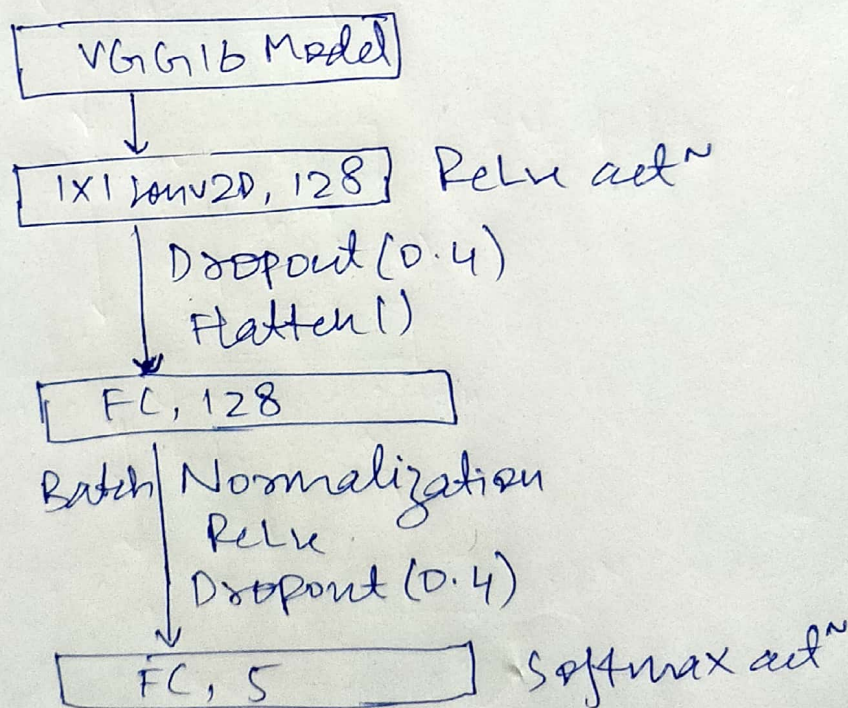 VGG16 Model
1X1 Conv2D, 128 ReLu act~
Dropout(0.4)
Flatten()
FC, 128
Batch Normalization
ReLu
Dropout(0.4)
FC, 5 Softmax act~